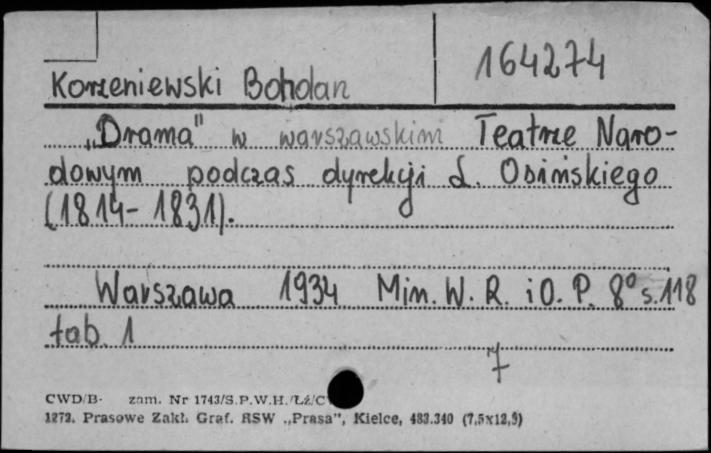 164274
Korzeniewski Bohdan
„Drama" w warszawskim Teatrze Naro-
dowym podczas dyrekcji L. Osińskiego
(1814-1831).
Warszawa 1934 Min. W. R. i O. P. 8° s. 118
tab. 1
7
CWD/B- zam. Nr 1743/S.P.W.H./Łź/C
1272. Prasowe Zakł. Graf. RSW „Prasa", Kielce, 483.340 (7,5x12,5)